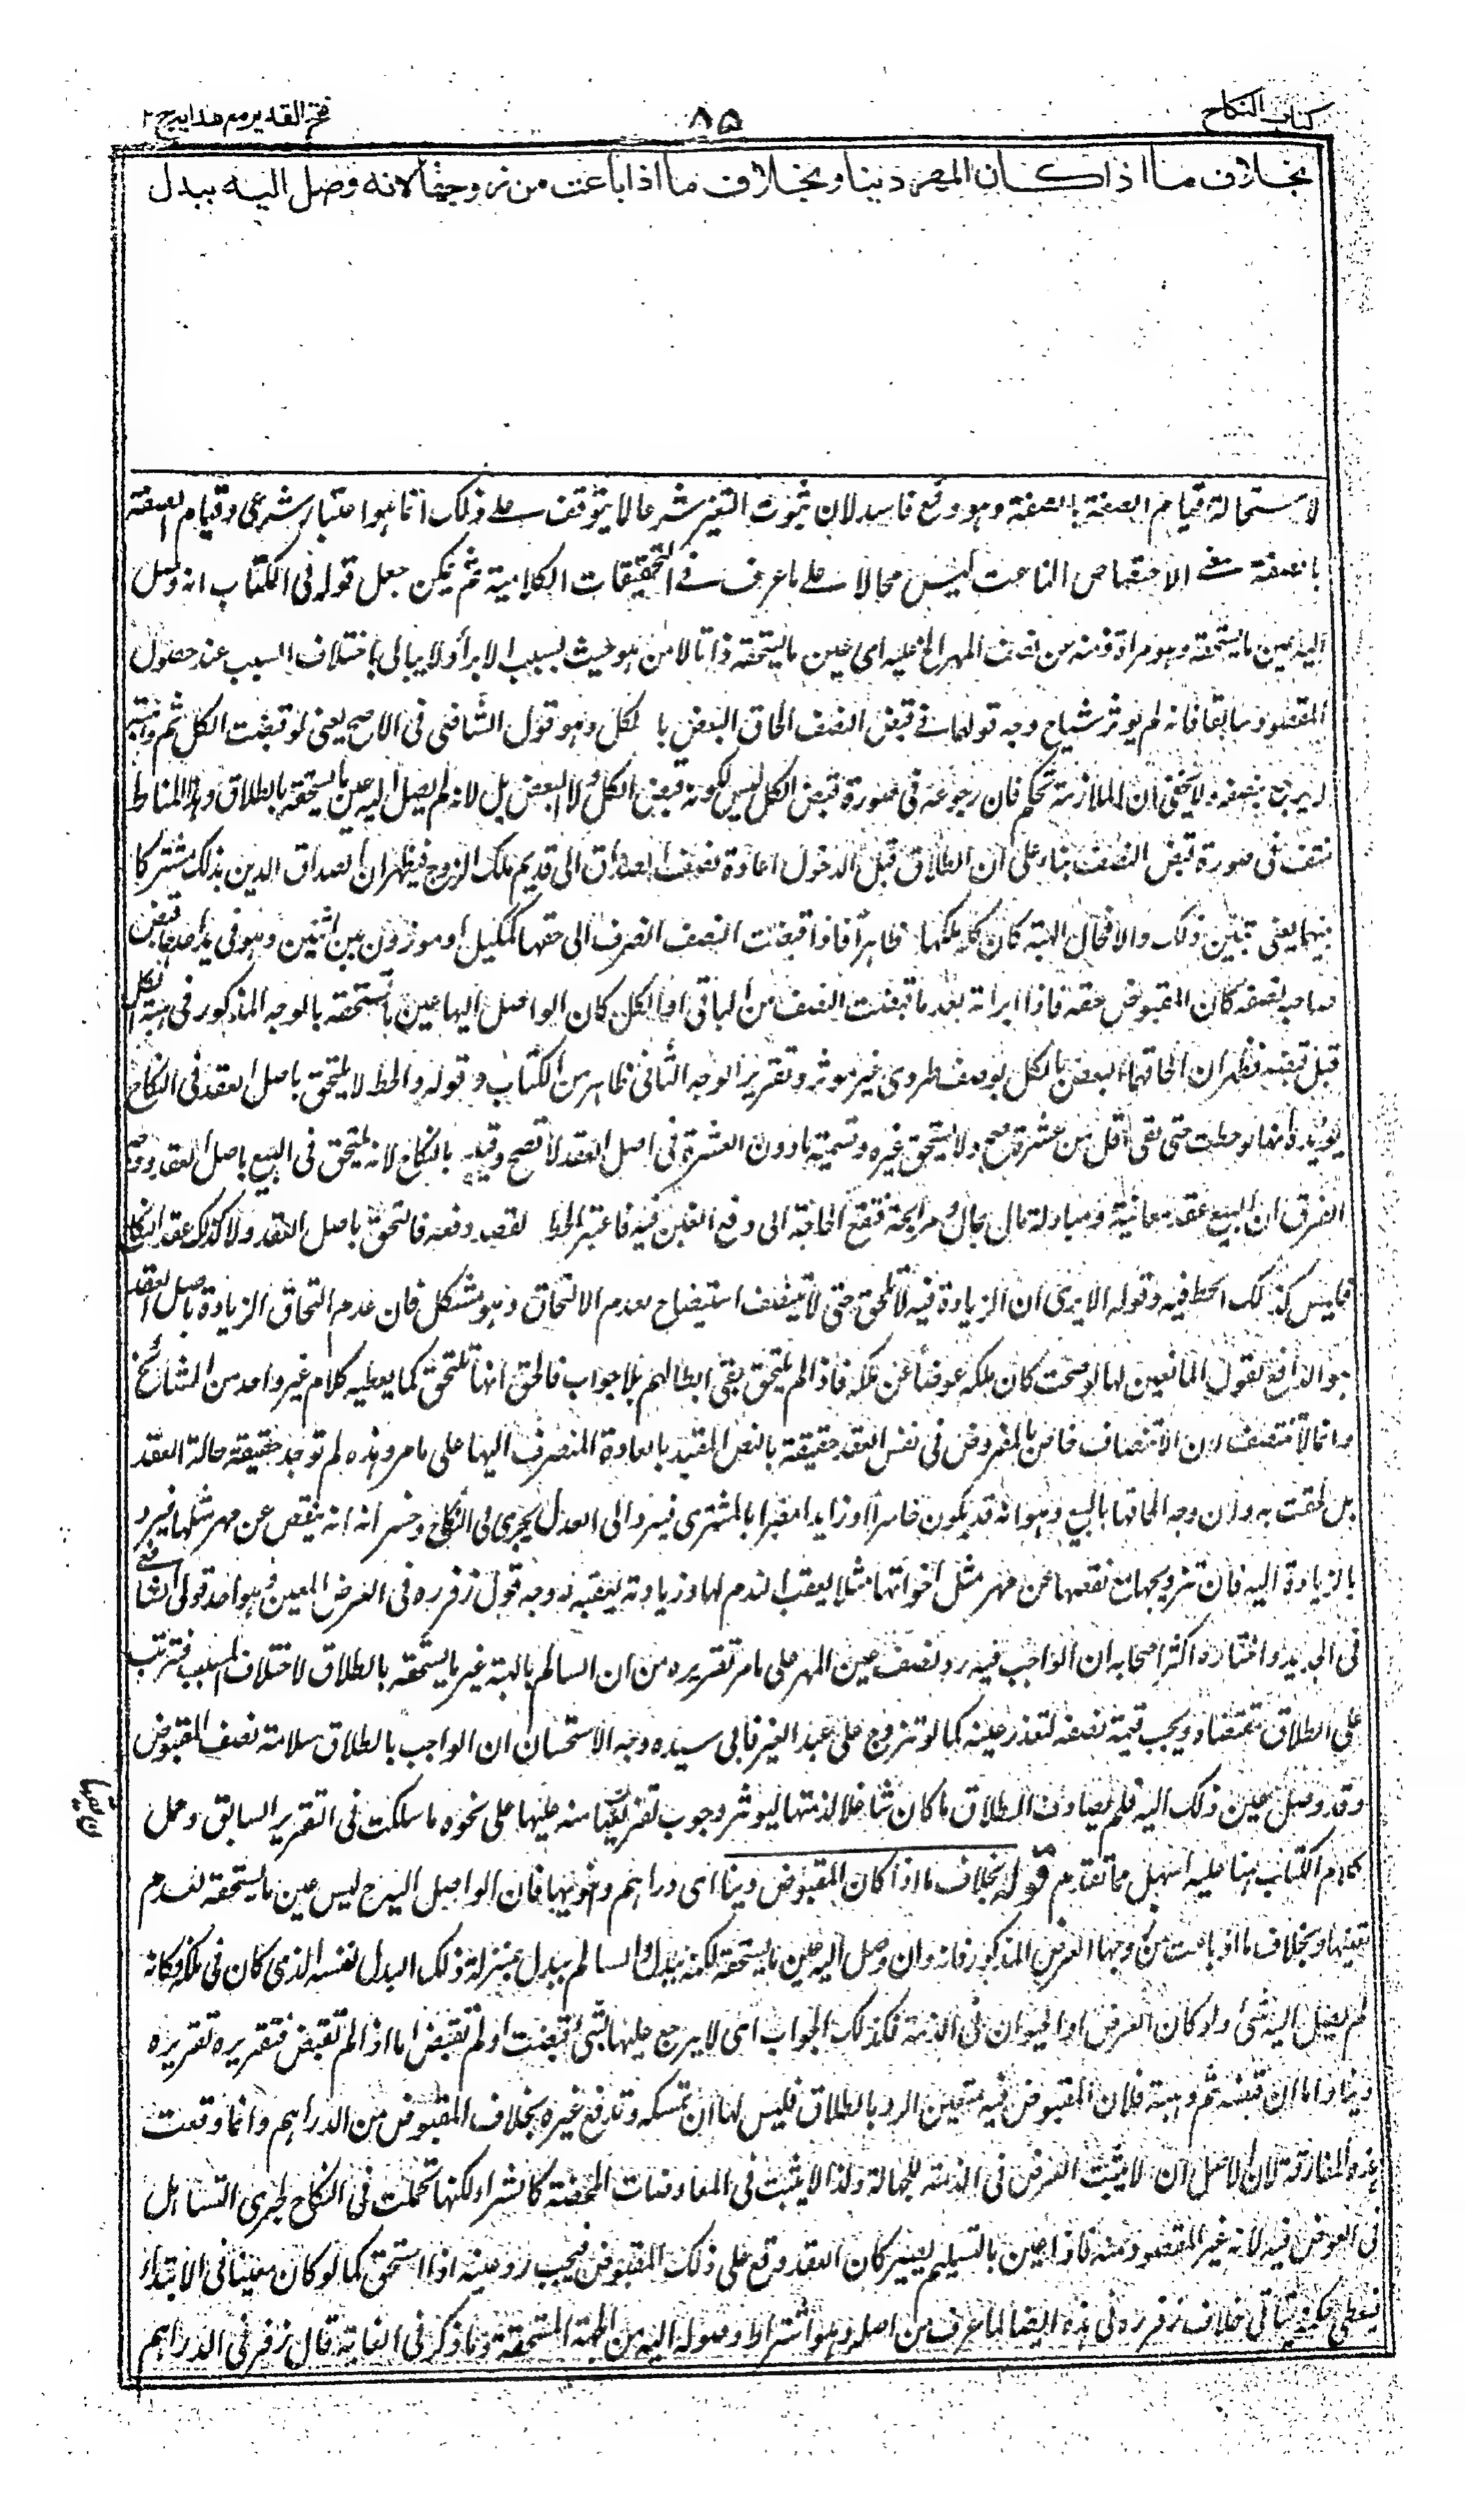 كتاب النكاح
٨٥
فتح القدير مع هدايه ج ٢
بخلاف ما اذا كان المهر دينا وبخلاف ما اذا باعت من زوجها لانه وصل اليه ببدل
لاستحالة قيام الصفة بالصفة وهو وقع فاسد لان ثبوت التغير شرعا لا يتوقف على ذلك انما هو اعتبار شرعى وقيام الصفة
بالصفة بمعنى الاختصاص الناعت ليس محالا على ما عرف فى التحقيقات الكلامية ثم يمكن جعل قوله فى الكتاب انه وصل
اليه عين ما يستحقه وهو براءة ذمته من نصف المهر الخ عليه اى عين ما يستحقه ذاتا لا من هو حيث بسبب الابراء ولا يبالى باختلاف السبب عند حصول
المقصود سابقا فانه لم يوثر شياح وجه قولهما فى قبض النصف الحاق البعض بالكل وهو قول الشافعى فى الاصح يعنى لو قبضت الكل ثم وهبته
لم يرجع بنصفه ولا يخفى ان الملازمة تحكم فان رجوعه فى صورة قبض الكل ليس لكونه قبض الكل ولا البعض بل لانه لم يصل اليه عين ما يستحقه بالطلاق وهذا المناط
منتف فى صورة قبض النصف بناء على ان الطلاق قبل الدخول اعادة نصف الصداق الى قديم ملك الزوج فيظهر ان الصداق الدين بذلك مشتركا
بينهما يعنى تبين ذلك والا فحال الهبة كان كله ملكها ظاهرا فاذا قبضت النصف انصرف الى حقها كمكيل او موزون بين اثنين وهو فى يد احدهما قبض
صاحبه نصفه كان المقبوض حقه فاذا ابراته بعد ما قبضت النصف من الباقى او الكل كان الواصل اليها عين ما تستحقه بالوجه المذكور فى هبة الكل
قبل قبضه فظهر ان الحاقهما البعض بالكل بوصف طردى غير موثر وتقرير الوجه الثانى ظاهر من الكتاب وقوله والحط لا يلتحق باصل العقد فى النكاح
يؤيده انها لو حطت حتى بقى اقل من عشرة صح ولا يستحق غيره وتسمية ما دون العشرة فى اصل العقد لا تصح وقيد بالنكاح لانه يلتحق فى البيع باصل العقد ووجه
الفرق ان البيع عقد مغابنة ومبادلة مال بمال ومرابحة فتقع الحاجة الى دفع الغبن فيه فاعتبر الحط لقصد دفعه فالتحق باصل العقد ولا كذلك عقد النكاح
فليس كذلك الحط فيه وقوله الا يرى ان الزيادة فيه لا تلتحق حتى لا تتنصف استيضاح بعدم الالتحاق وهو مشكل فان عدم التحاق الزيادة باصل العقد
هو الدافع لقول المانعين لها لو صحت كان ملكه عوضا عن ملكه فاذا لم يلتحق بقى ابطالهم بلا جواب فالحق انها تلتحق كما يعطيه كلام غير واحد من المشائخ
وانما لا تتنصف لان الانتصاف خاص بالمفروض فى نفس العقد حقيقة بالنص المقيد بالعادة المنصرف اليها على ما مر وهذه لم توجد حقيقة حالة العقد
بل لحقت به وان وجه الحاقها بالبيع وهو انه قد يكون خاسرا او زايدا مضرا بالمشترى فيرد الى العدل يجرى فى النكاح وخسرانه انه ينقص عن مهر مثلها فيرد
بالزيادة اليه فان تزويجها مع نقصها عن مهر مثل اخواتها مثلا يعقب الندم لها وزيادته يعقبه له وجه قول زفر ره فى العرض المعين وهو احد قولى الشافعى
فى الجديد واختاره اكثر اصحابه ان الواجب فيه رد نصف عين المهر على ما مر تقريره من ان السالم بالهبة غير ما يستحقه بالطلاق لاختلاف السبب فترتب
على الطلاق مقتضاه ويجب قيمة نصفه لتعذر عينه كما لو تزوج على عبد الغير فابى سيده وجه الاستحسان ان الواجب بالطلاق سلامة نصف المقبوض
وقد وصل عين ذلك اليه فلم يصادف الطلاق ما كان شاغلا لذمتها ليوثر وجوب تفريغها منه عليها على نحوه ما سلكت فى التقرير السابق وحمل
كلام الكتاب هنا عليه اسهل مما تقدم قوله بخلاف ما اذا كان المقبوض دينا اى دراهم ونحوها فان الواصل اليه ح ليس عين ما يستحقه لعدم
تعينها وبخلاف ما اذا باعت من زوجها العرض المذكور فانه وان وصل اليه عين ما يستحقه لكنه ببدل والسالم ببدل بمنزلة ذلك البدل نفسه الذى كان فى ملكه فكانه
لم يصل اليه شئ ولو كان العرض او الحيوان فى الذمة فكذلك الجواب اى لا يرجع عليها بشئ قبضت او لم تقبض اما اذا لم تقبض فتقريره تقريره
دينا واما ان قبضه ثم وهبته فلان المقبوض فيه متعين الرد بالطلاق فليس لها ان تمسكه وتدفع غيره بخلاف المقبوض من الدراهم وانما وقعت
هذه المفارقة لان الاصل ان لا يثبت العرض فى الذمة للجهالة ولذا لا يثبت فى المعاوضات المحضة كالشراء لكنها تحملت فى النكاح لجرى التساهل
فى العوض فيه لانه غير المقصود منه فاذا عين بالتسليم يصير كان العقد وقع على ذلك المقبوض فيجب رد عينه اذا استحق كما لو كان معينا فى الابتداء
فيعطى حكمه وياتى خلاف زفر ره فى هذه ايضا لما عرف من اصله وهو اشتراط وصوله اليه من الجهة المستحقة وما ذكر فى الغاية قال زفر فى الدراهم